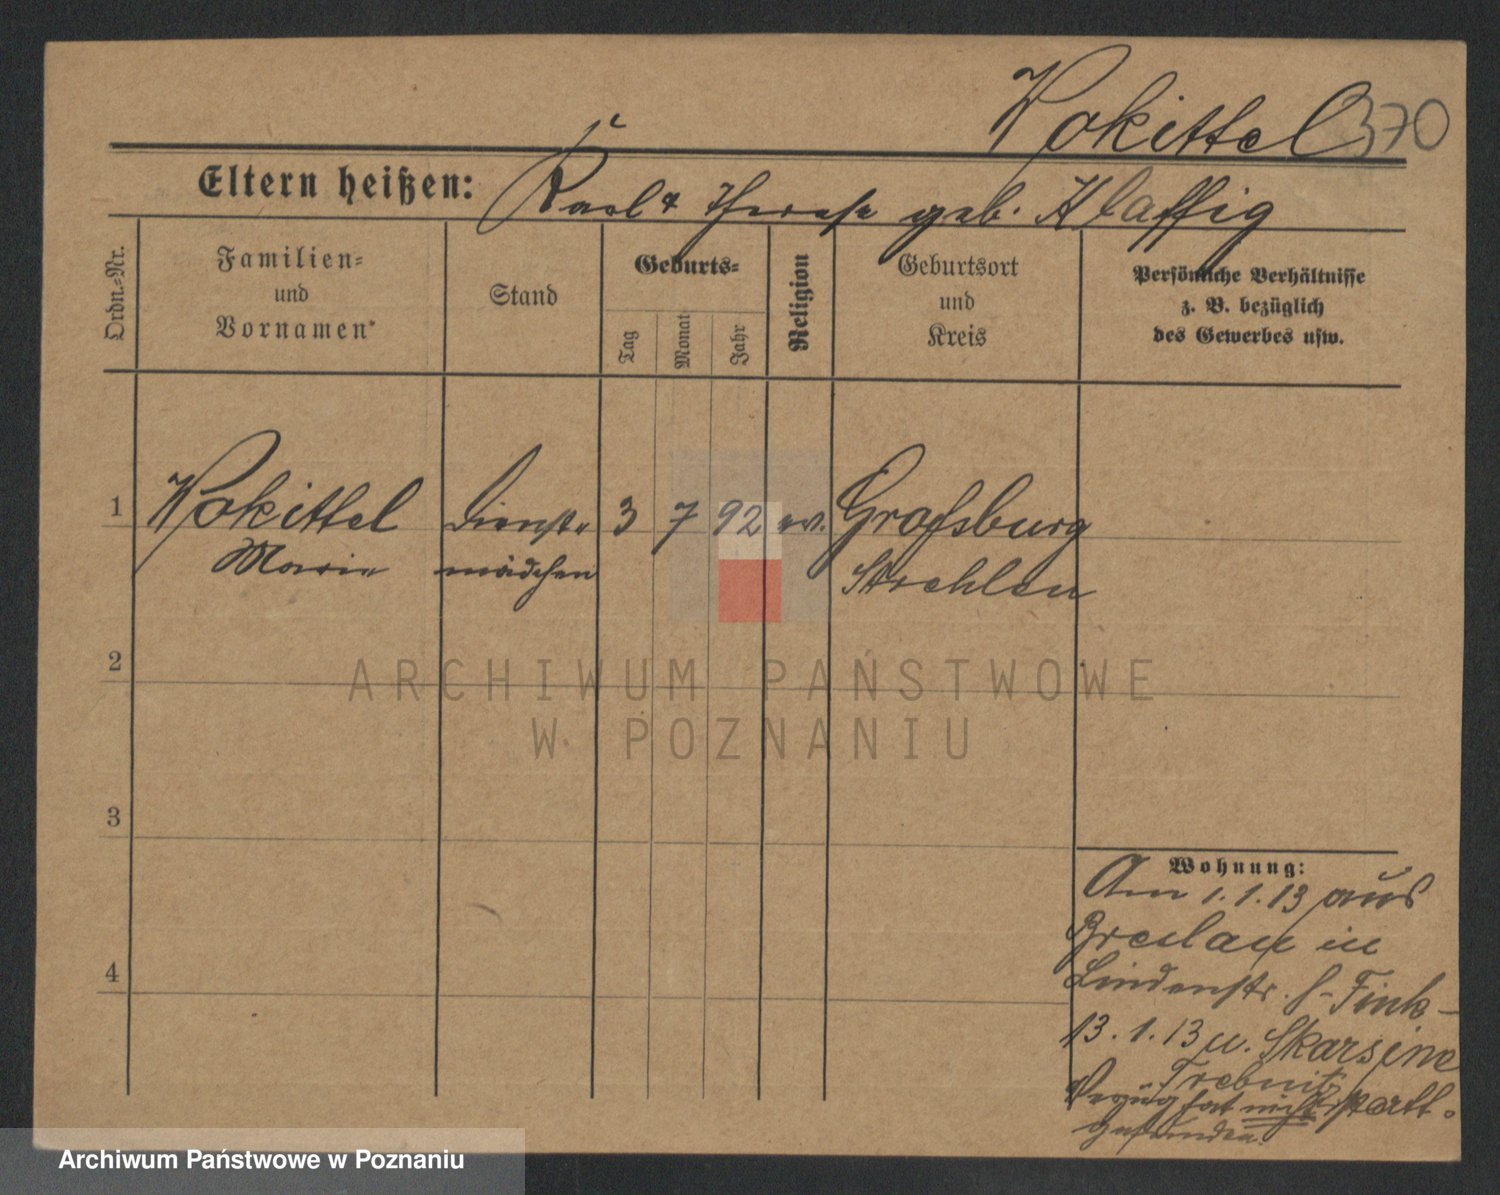 Wokittel 370
Eltern heißen: Karl & Therese geb. Klaffig
Ordn.-Nr.
Familien-
und
Vornamen
Stand
Geburts-
Tag
Monat
Jahr
Religion
Geburtsort
und
Kreis
Persönliche Verhältnisse
z. B. bezüglich
des Gewerbes usw.
1 Wokittel Dienst- 3 7 92 ev. Grafsburg
Marie mädchen Strehlen
2
3
4
Wohnung:
Am 1.1.13 aus
Breslau in
Lindenstr. 8 - Fink -
13.1.13 n. Skarsine
Trebnitz
Verzug hat nicht statt-
gefunden.
ARCHIWUM PAŃSTWOWE
W POZNANIU
Archiwum Państwowe w Poznaniu